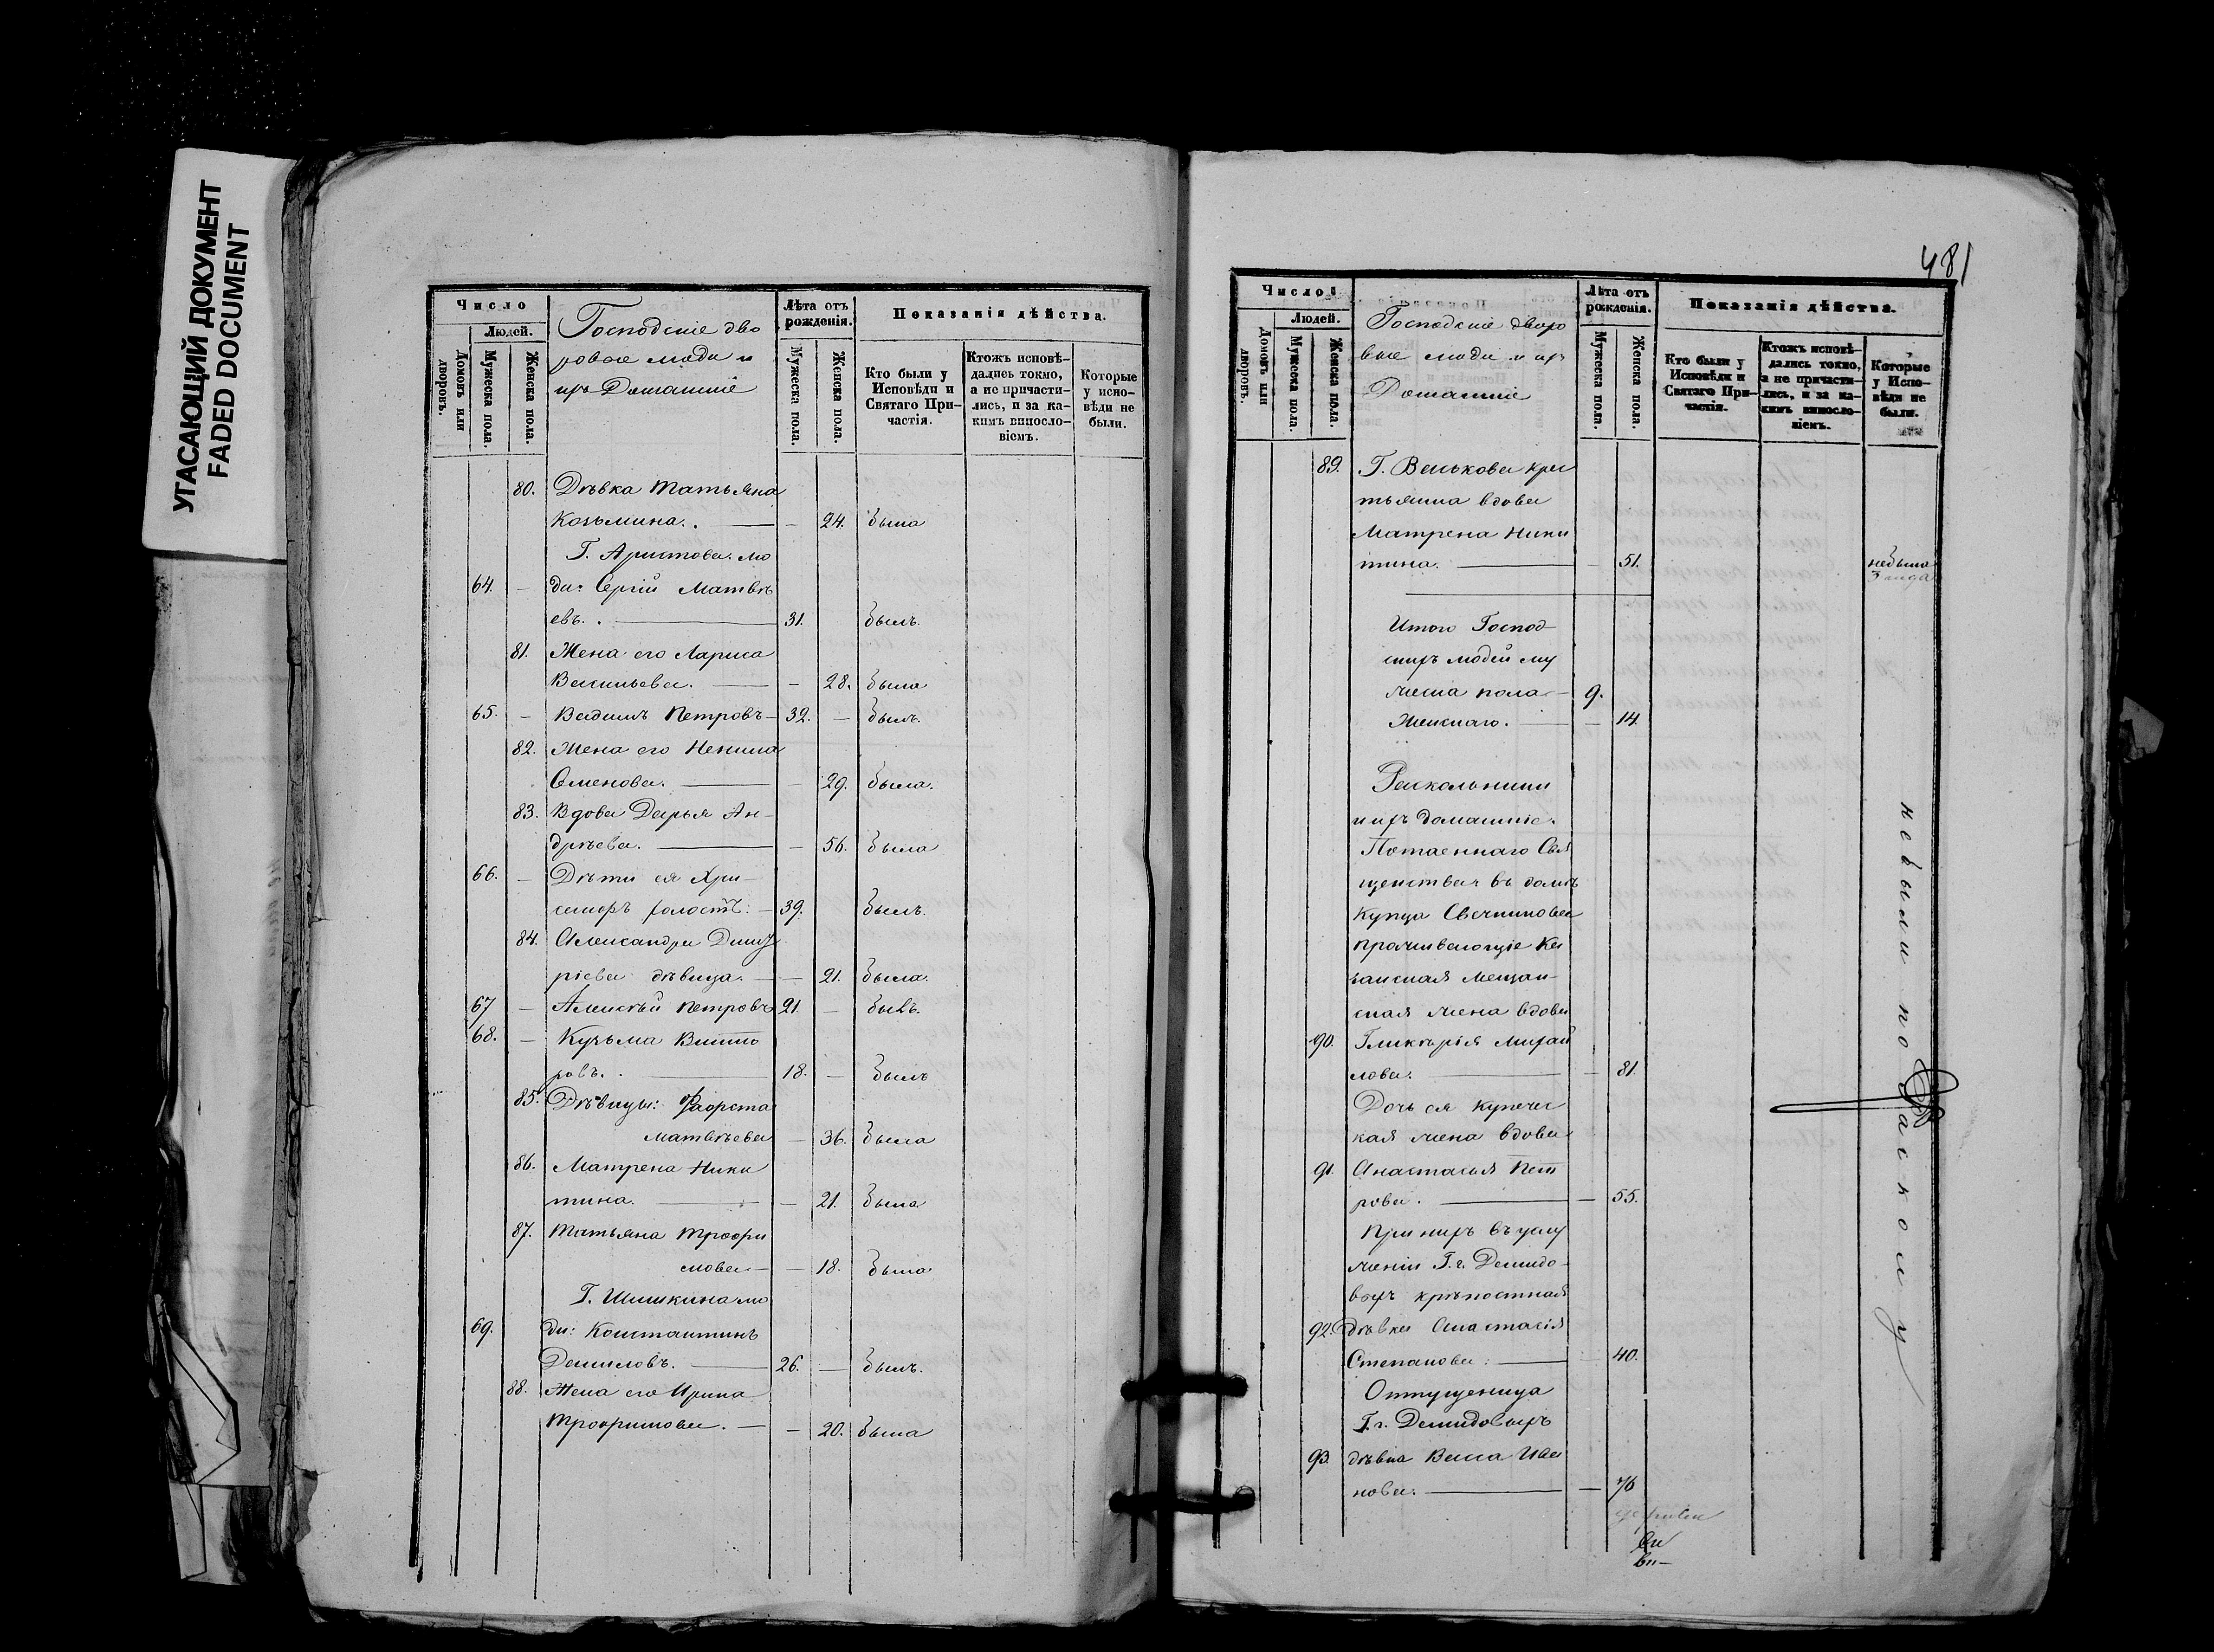 УГАСАЮЩИЙ ДОКУМЕНТ
FADED DOCUMENT
Число
Людей.
Домовъ или дворовъ.
Мужеска пола.
Женска пола.
Господскіе дво
ровые люди и
ихъ Домашніе
Лѣта отъ рожденія.
Мужеска пола.
Женска пола.
Показанія дѣйства.
Кто были у Исповѣди и Святаго Причастія.
Ктожъ исповѣдались токмо, а не причастились, и за какимъ винословіемъ.
Которые у исповѣди не были.
80. Дѣвка Татьяна
Козьмина. — 24. была
Г. Аристова лю
64. — ди: Сергій Матвѣ
евъ. 31. былъ.
81. Жена его Лариса
Васильева. — 28. была
65. — Вадимъ Петровъ — 32. — былъ.
82. Жена его Ненила
Семенова. — 29. была.
83. Вдова Дарья Ан-
дрѣева. — 56. была
66. — Дѣти ея Хри-
санфъ холостъ. — 39. былъ.
84. Александра Дмит
ріева дѣвица. — 21. была.
67 — Алексѣй Петровъ 21. — бывъ.
68. — Кузьма Викто
ровъ. 18. — былъ
85. Дѣвицы:
Матвѣева — 36. была
86. Матрена Ники
тина. — 21. была
87. Татьяна Трофи
мова — 18. была
Г. Шишкина лю
69. ди: Константинъ
Даниловъ. 26. — былъ.
88. Жена его Ирина
Трофимова. — 20. была
481
Число
Людей.
Домовъ или дворовъ.
Мужеска пола.
Женска пола.
Господскіе дворо
вые люди и ихъ
Домашніе
Лѣта отъ рожденія.
Мужеска пола.
Женска пола.
Показанія дѣйства.
Кто были у Исповѣди и Святаго Причастія.
Ктожъ исповѣдались токмо, а не причастились, и за какимъ винословіемъ.
Которые у Исповѣди не были.
89. Г. Волькова крес
тьянка вдова
Матрена Ники
тина. — 51. небыла
3 года
Итого Господ-
скихъ людей му
жеска пола — 9.
Женскаго. — 14.
Раскольники
и ихъ домашніе.
Потаеннаго Свя
щенства въ домѣ
Купца Свечникова
проживающіе Ка
занская Мещан-
ская жена вдова
90. Гликерія Михай
лова. — 81.
Дочь ея купечес
кая жена вдова
91. Анастасья Пет
рова. — 55.
При нихъ въ услу
женіи Г.г. Демидо-
выхъ крѣпостная
92. дѣвка Анастасія
Степанова. 40.
Отпущеница
Г.г. Демидовыхъ
93. дѣвка Васса Ива
нова. — 76
небыли по расколу